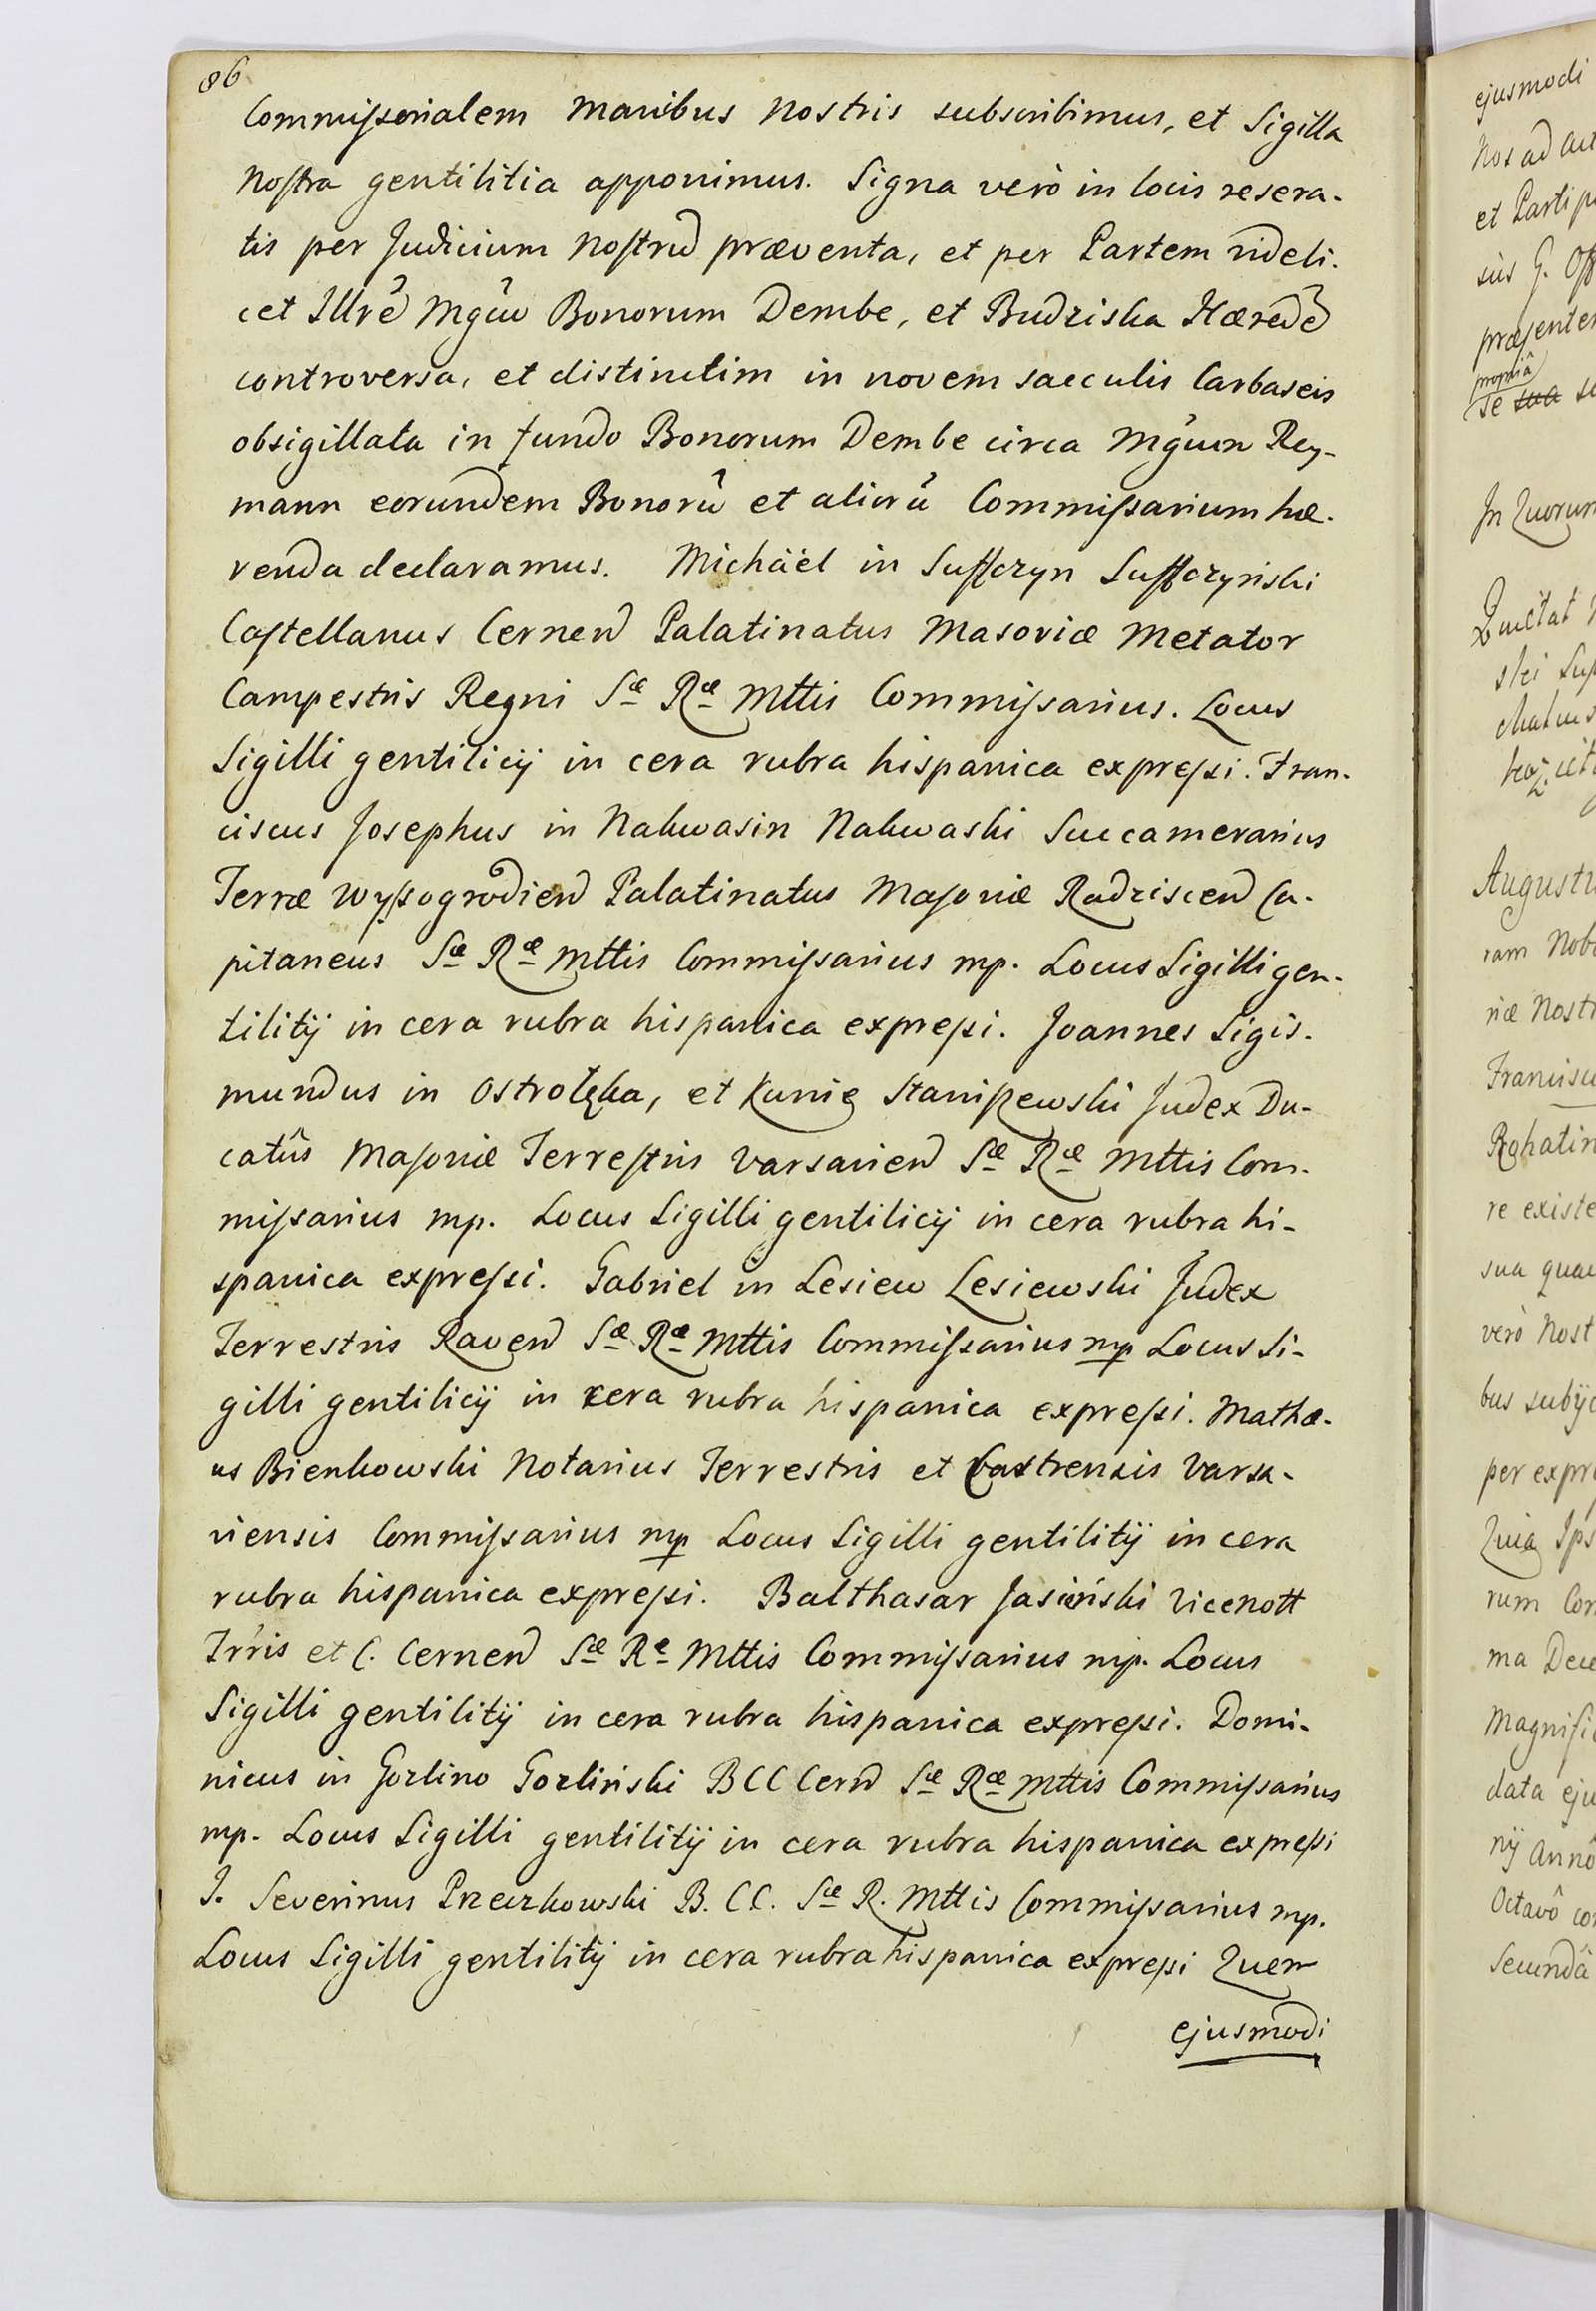 86
Commissorialem Manibus Nostris subscribimus, et Sigilla
Nostra gentilitia apponimus. Signa verò in locis resera-
tis per Judicium Nostrũ præventa, et per Partem videli-
cet Illrẽ Mgũ Bonorum Dembe, et Budziska Hæredẽ
controversa, et distinctim in novem sacculis Carbaseis
obsigillata in fundo Bonorum Dembe circa Mgũm Rey-
mann eorundem Bonorũ et aliorũ Commissarium hæ-
renda declaramus. Michäel in Suffczyn Suffczyński
Castellanus Cernen Palatinatus Masoviæ Metator
Campestris Regni Sæ Ræ Mttis Commissarius. Locus
Sigilli gentilicij in cera rubra hispanica expressi. Fran-
ciscus Josephus in Nakwasin Nakwaski Succamerarius
Terræ Wyssogrodien Palatinatus Masoviæ Radziscen Ca-
pitaneus Sæ Ræ Mttis Commissarius mp. Locus Sigilli gen-
tilitij in cera rubra hispanica expressi. Joannes Sigis-
mundus in Ostrołęka, et Kunie Staniszewski Judex Du-
catûs Masoviæ Terrestris Varsavien Sæ Ræ Mttis Com-
missarius mp. Locus Sigilli gentilicij in cera rubra hi-
spanica expressi. Gabriel in Lesiew Lesiewski Judex
Terrestris Raven Sæ Ræ Mttis Commissarius mp Locus Si-
gilli gentilicij in cera rubra hispanica expressi. Mathæ-
us Bienkowski Notarius Terrestris et Castrensis Varsa-
viensis Commissarius mp Locus Sigilli gentilitij in cera
rubra hispanica expressi. Balthasar Jasiński Vicenott
Trris et C. Cernen Sæ Ræ Mttis Commissarius mp. Locus
Sigilli gentilitij in cera rubra hispanica expressi. Domi-
nicus in Gozlino Gozliński BCC Cern Sæ Ræ Mttis Commissarius
mp. Locus Sigilli gentilitij in cera rubra hispanica expressi
J. Severinus Przeczkowski B. CC. Sæ R. Mttis Commissarius mp.
Locus Sigilli gentilitij in cera rubra hispanica expressi Quem
ejusmodi
ejusmodi
Nos ad
et Parti
præsente
propriâ
se sua
In Quorum
Augustu
ram Nob
riæ Nost
Francisc
Rohatin
re existe
sua qua
verò Nost
bus subij
per expr
Quia Ips
rum Con
ma Dece
Magnifi
data eju
nij Annô
Octavô co
Secundâ